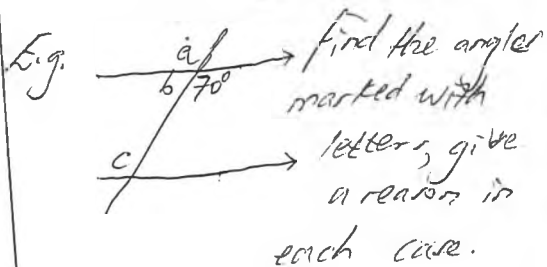 E.g.
a
b 70°
c
Find the angles
marked with
letters, give
a reason in
each case.